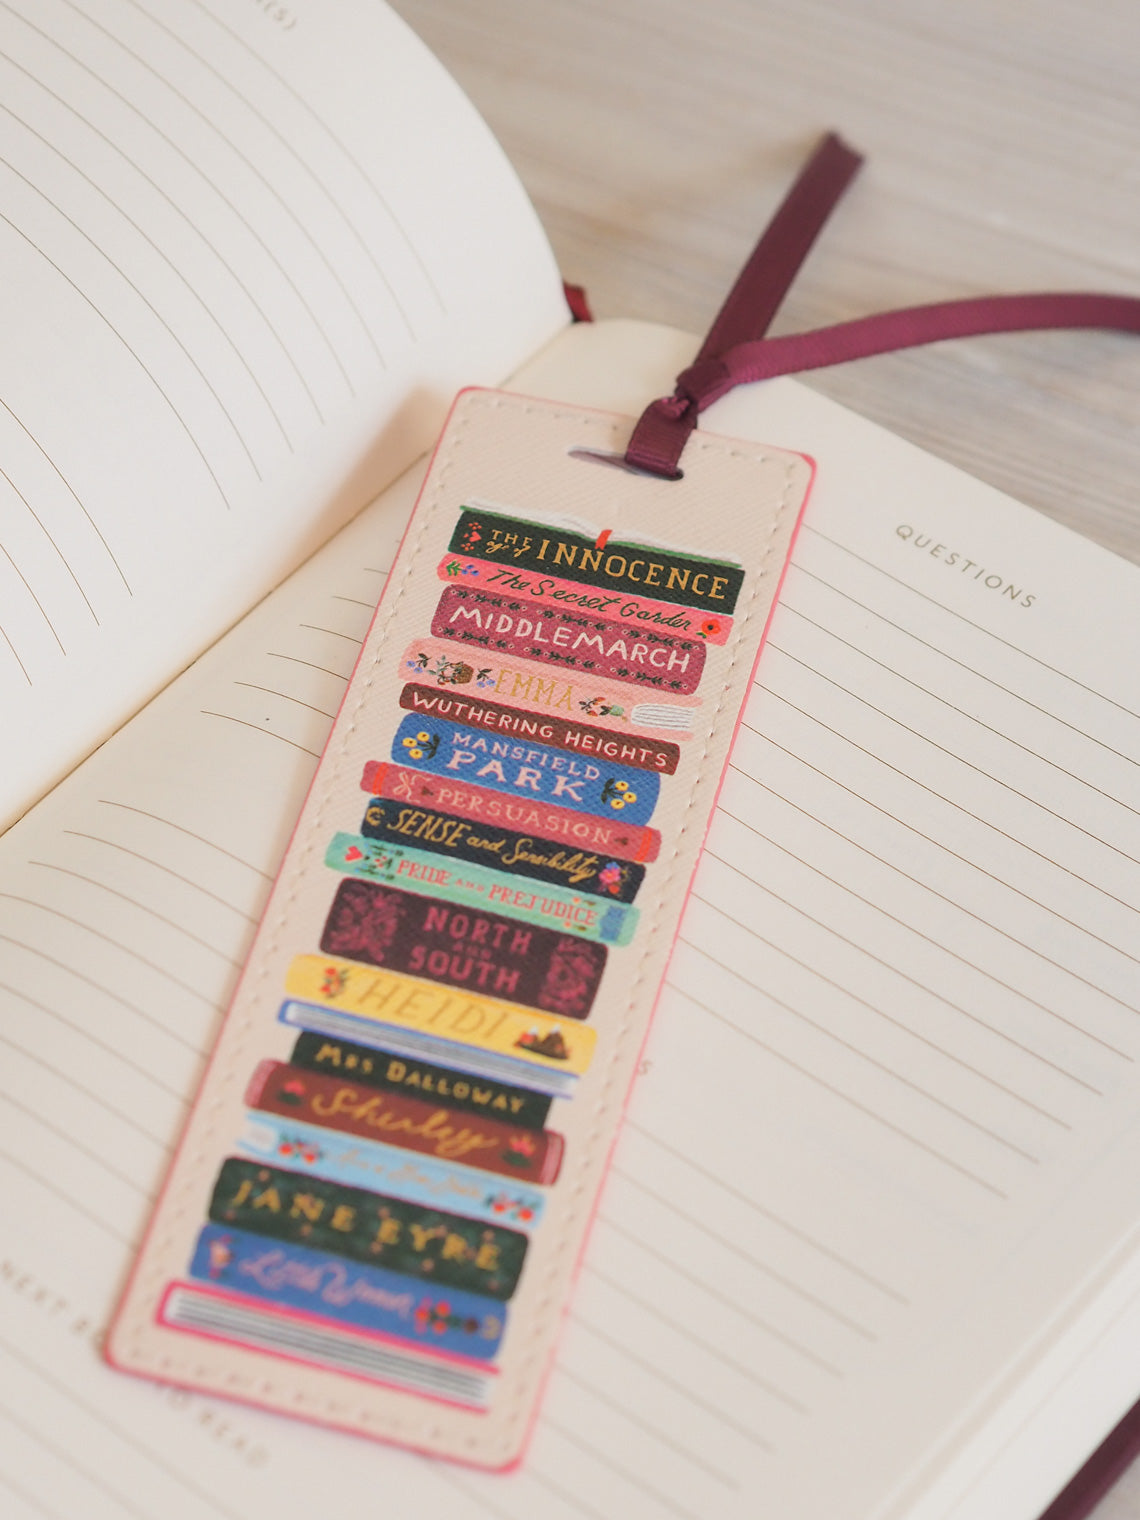 QUESTIONS
THE
age of INNOCENCE
The Secret Garden
MIDDLEMARCH
EMMA
WUTHERING HEIGHTS
MANSFIELD
PARK
PERSUASION
SENSE and Sensibility
PRIDE AND PREJUDICE
NORTH
AND
SOUTH
HEIDI
MRS DALLOWAY
Shirley
JANE EYRE
Little Women
NEXT
TO READ